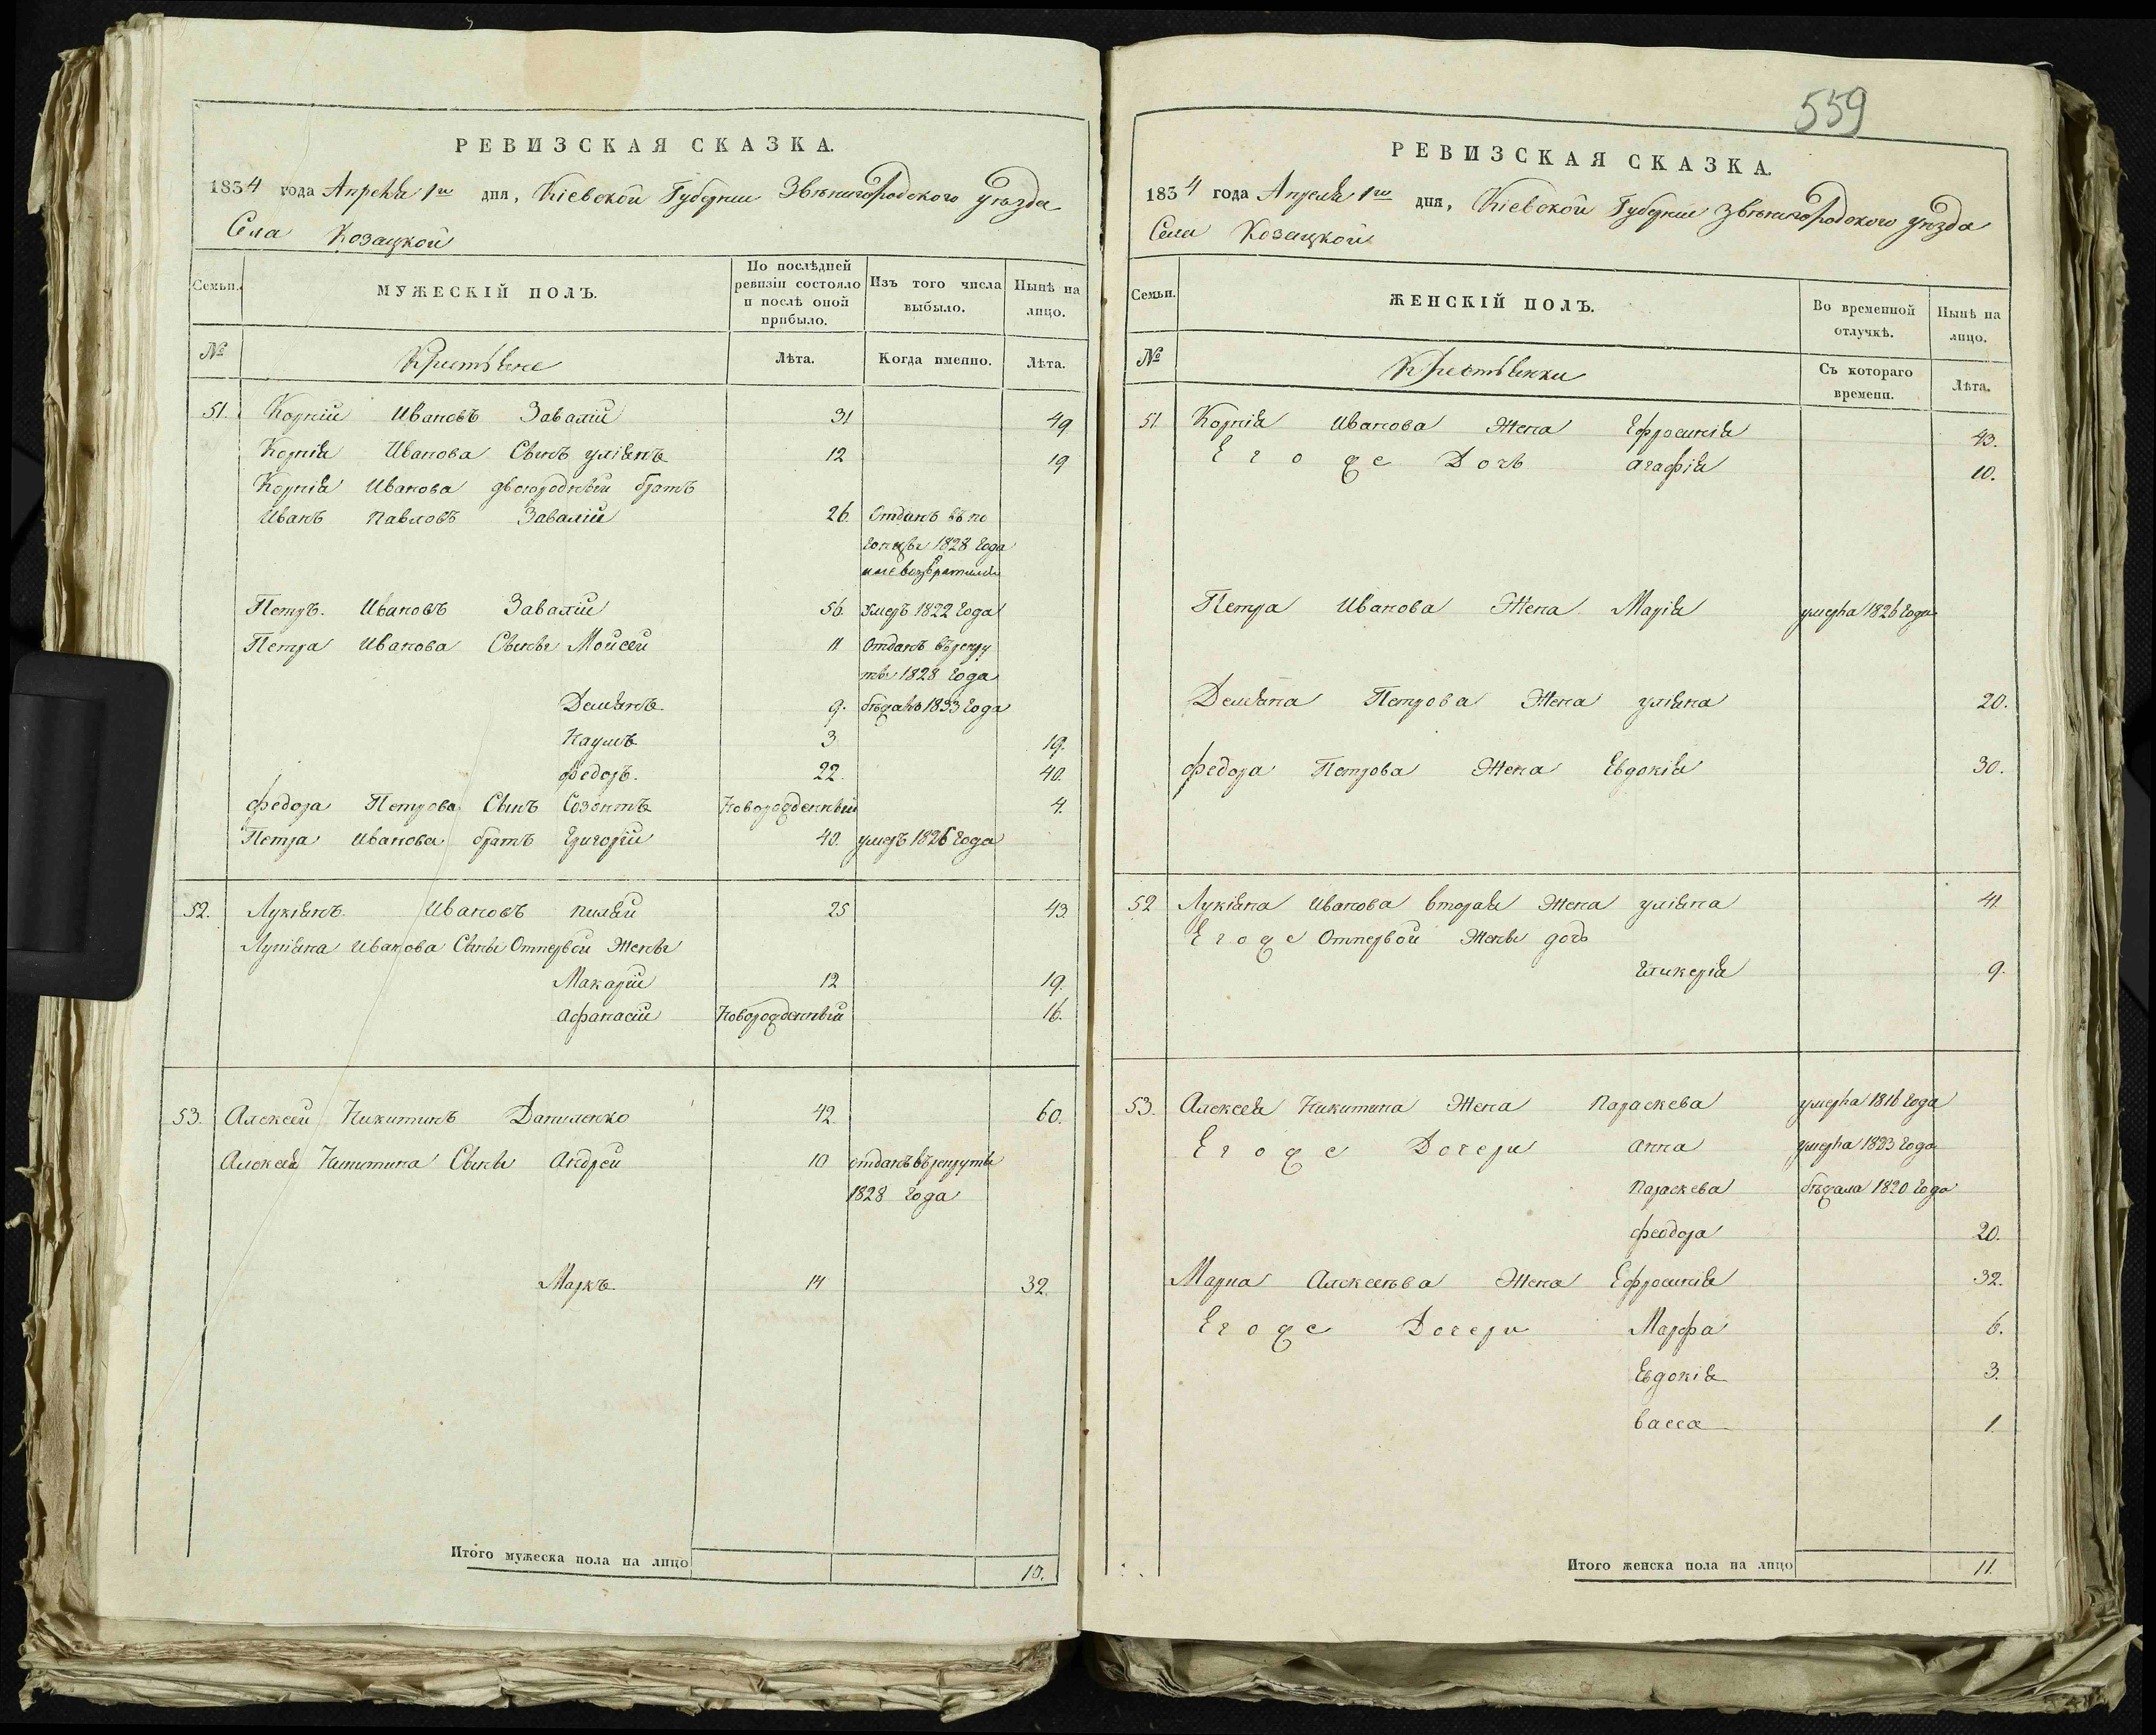 РЕВИЗСКАЯ СКАЗКА.
1834 года Апреля 1го дня, Кіевской Губерніи Звѣнигородского уѣзда
Села Козацкой
Семьи.
МУЖЕСКІЙ ПОЛЪ.
По послѣдней ревизіи состояло и послѣ оной прибыло.
Изъ того числа выбыло.
Нынѣ на лицо.
№
Крестьяне
Лѣта.
Когда именно.
Лѣта.
51. Корній Ивановъ Завалій 31 49
Корнія Иванова Сынъ уліянъ 12 19
Корнія Иванова двоюродный братъ
Иванъ Павловъ Завалій 26. Отданъ въ по
гонцы 1828 года
и не возвратился
Петръ. Ивановъ Завалій 56. умеръ 1822 года
Петра Иванова Сыны Мойсей 11 Отданъ въ рекру
ты 1828 года
Демянъ 9. бѣжалъ 1833 года
Наумъ 3 19.
федоръ. 22. 40.
федора Петрова Сынъ Созонтъ Новорожденный 4.
Петра Иванова братъ Григорій 40. умеръ 1826 года
52. Лукіянъ. Ивановъ 25 43
Лукіяна Иванова Сыны Отпервой Жены
Макарій 12 19.
Афанасій Новорожденный 16.
53. Алексей Никитинъ Даниленко 42 60.
Алексея Никитина Сыны Андрей 10 отданъ въ рекруты
1828 года
Маркъ 14 32
Итого мужеска пола на лицо 10.
559
РЕВИЗСКАЯ СКАЗКА.
1834 года Апреля 1го дня, Кіевской Губерніи Звѣнигородского уѣзда
Села Козацкой
Семьи.
ЖЕНСКІЙ ПОЛЪ.
Во временной отлучкѣ.
Нынѣ на лицо.
№
Крестьянки
Съ котораго времени.
Лѣта.
51. Корнія Иванова Жена Ефросинія 43.
Егоже Дочь агафія 10.
Петра Иванова Жена Марія умерла 1826 года
Демяна Петрова Жена уліяна 20.
федора Петрова Жена Евдокія 30.
52 Лукіяна Иванова вторая Жена уліяна 41
Егоже Отпервой Жены дочь
Гликерія 9.
53. Алексея Никитина Жена Параскева умерла 1816 года
Егоже Дочери анна умерла 1823 года
Параскева бѣжала 1820 года
феодора 20.
Марка Алексѣева Жена Ефросинія 32.
Егоже Дочери Марфа 6.
Евдокія 3.
васса 1
Итого женска пола на лицо 11.